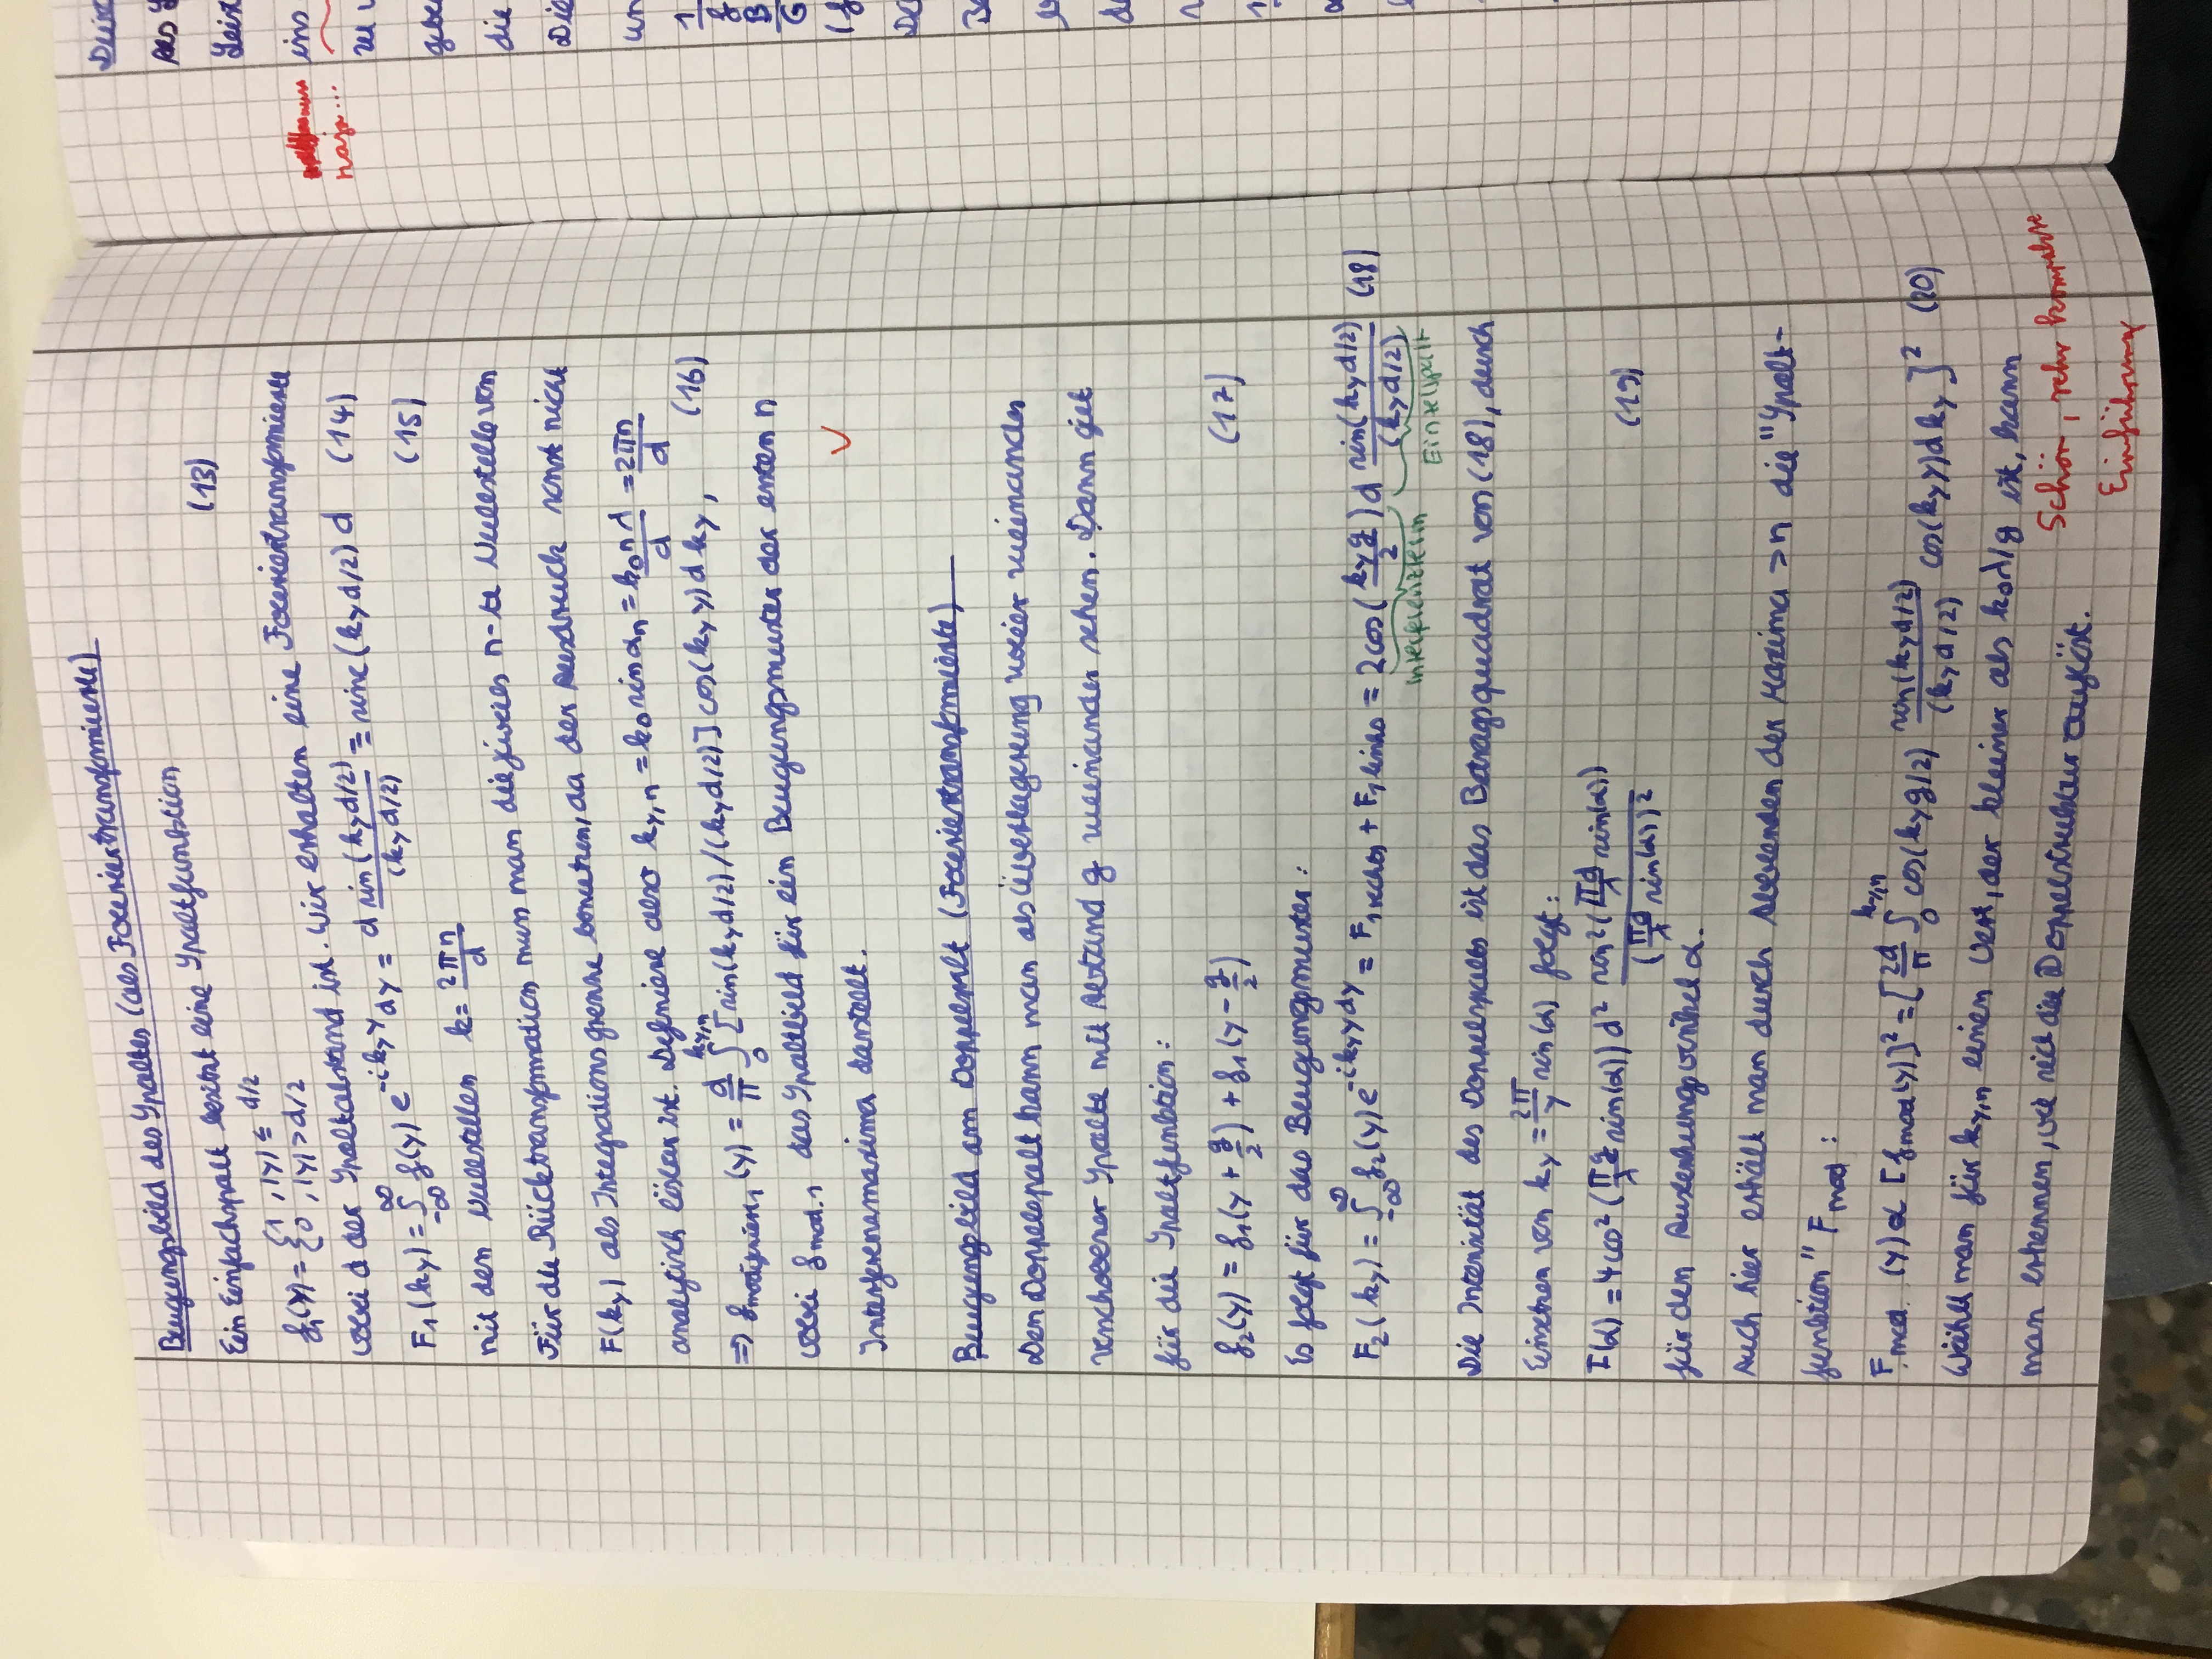 Beugungsbild des Spaltes (als Fouriertransformierte)
Ein Einfachspalt besitzt eine Spaltfunktion
f₁(y) = { 1 , |y| ≤ d/2
{ 0 , |y| > d/2 (13)
wobei d der Spaltabstand ist. Wir erhalten eine Fouriertransformierte
F₁(k_y) = ∫_{-∞}^{∞} f(y) e^{-ik_y y} dy = d sin(k_y d/2)/(k_y d/2) ≡ sinc(k_y d/2) d (14)
mit den Nullstellen k = 2πn/d (15)
Für die Rücktransformation muss man die jeweils n-te Nullstelle von
F(k_y) als Integrationsgrenze benutzen, da der Ausdruck sonst nicht
analytisch lösbar ist. Definiere also k_{y,n} = k₀ sin α_n = k₀ n λ/d = 2πn/d
⇒ f_{modifiziert,1} (y) = d/π ∫_0^{k_{y,n}} [sin(k_y d/2)/(k_y d/2)] cos(k_y y) d k_y , (16)
wobei f_{mod.,1} das Spaltbild für ein Beugungsmuster der ersten n
Interferenzmaxima darstellt. ✓
Beugungsbild am Doppelspalt (Fouriertransformierte)
Den Doppelspalt kann man als Überlagerung zweier zueinander
verschobener Spalte mit Abstand g zueinander sehen. Dann gilt
für die Spaltfunktion:
f₂(y) = f₁(y + g/2) + f₁(y - g/2) (17)
Es folgt für das Beugungsmuster:
F₂(k_y) = ∫_{-∞}^{∞} f₂(y) e^{-ik_y y dy} = F_{1 rechts} + F_{1 links} = 2cos(k_y g/2) d sin(k_y d/2)/(k_y d/2) (18)
Interferenzterm Einzelspalt
Die Intensität des Doppelspalts ist das Betragsquadrat von (18), durch
Einsetzen von k_y = 2π/γ sin(α) folgt:
I(α) = 4cos² (πg/λ sin(α)) d² sin²(πd/λ sin(α))/(πd/λ sin(α))² (19)
für den Auslenkungswinkel α.
Auch hier erhält man durch Abblenden der Maxima > n die "Spalt-
funktion" F_mod :
F_mod. (y) α [f_mod(y)]² = [ 2d/π ∫_0^{k_{y,n}} cos(k_y g/2) sin(k_y d/2)/(k_y d/2) cos(k_y y) d k_y ]² (20)
Wählt man für k_{y,n} einen Wert, der kleiner als k₀λ/g ist, kann
man erkennen, wie sich die Doppelstruktur auflöst.
Schön, sehr kompakte
Einführung
naja...
ins
die